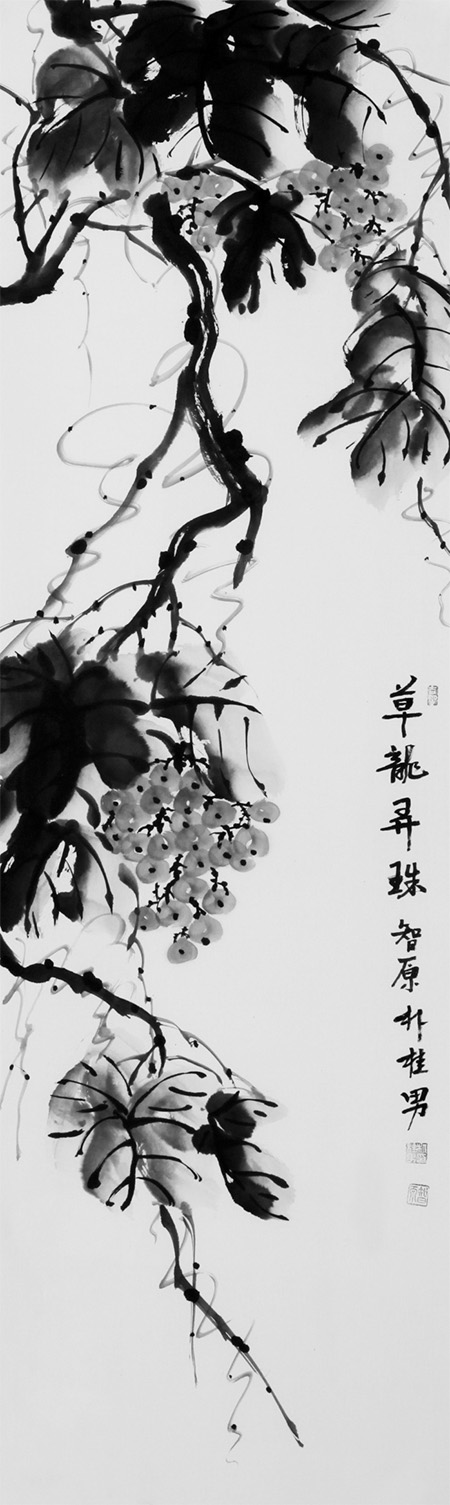 草龍弄珠 智原 朴桂男